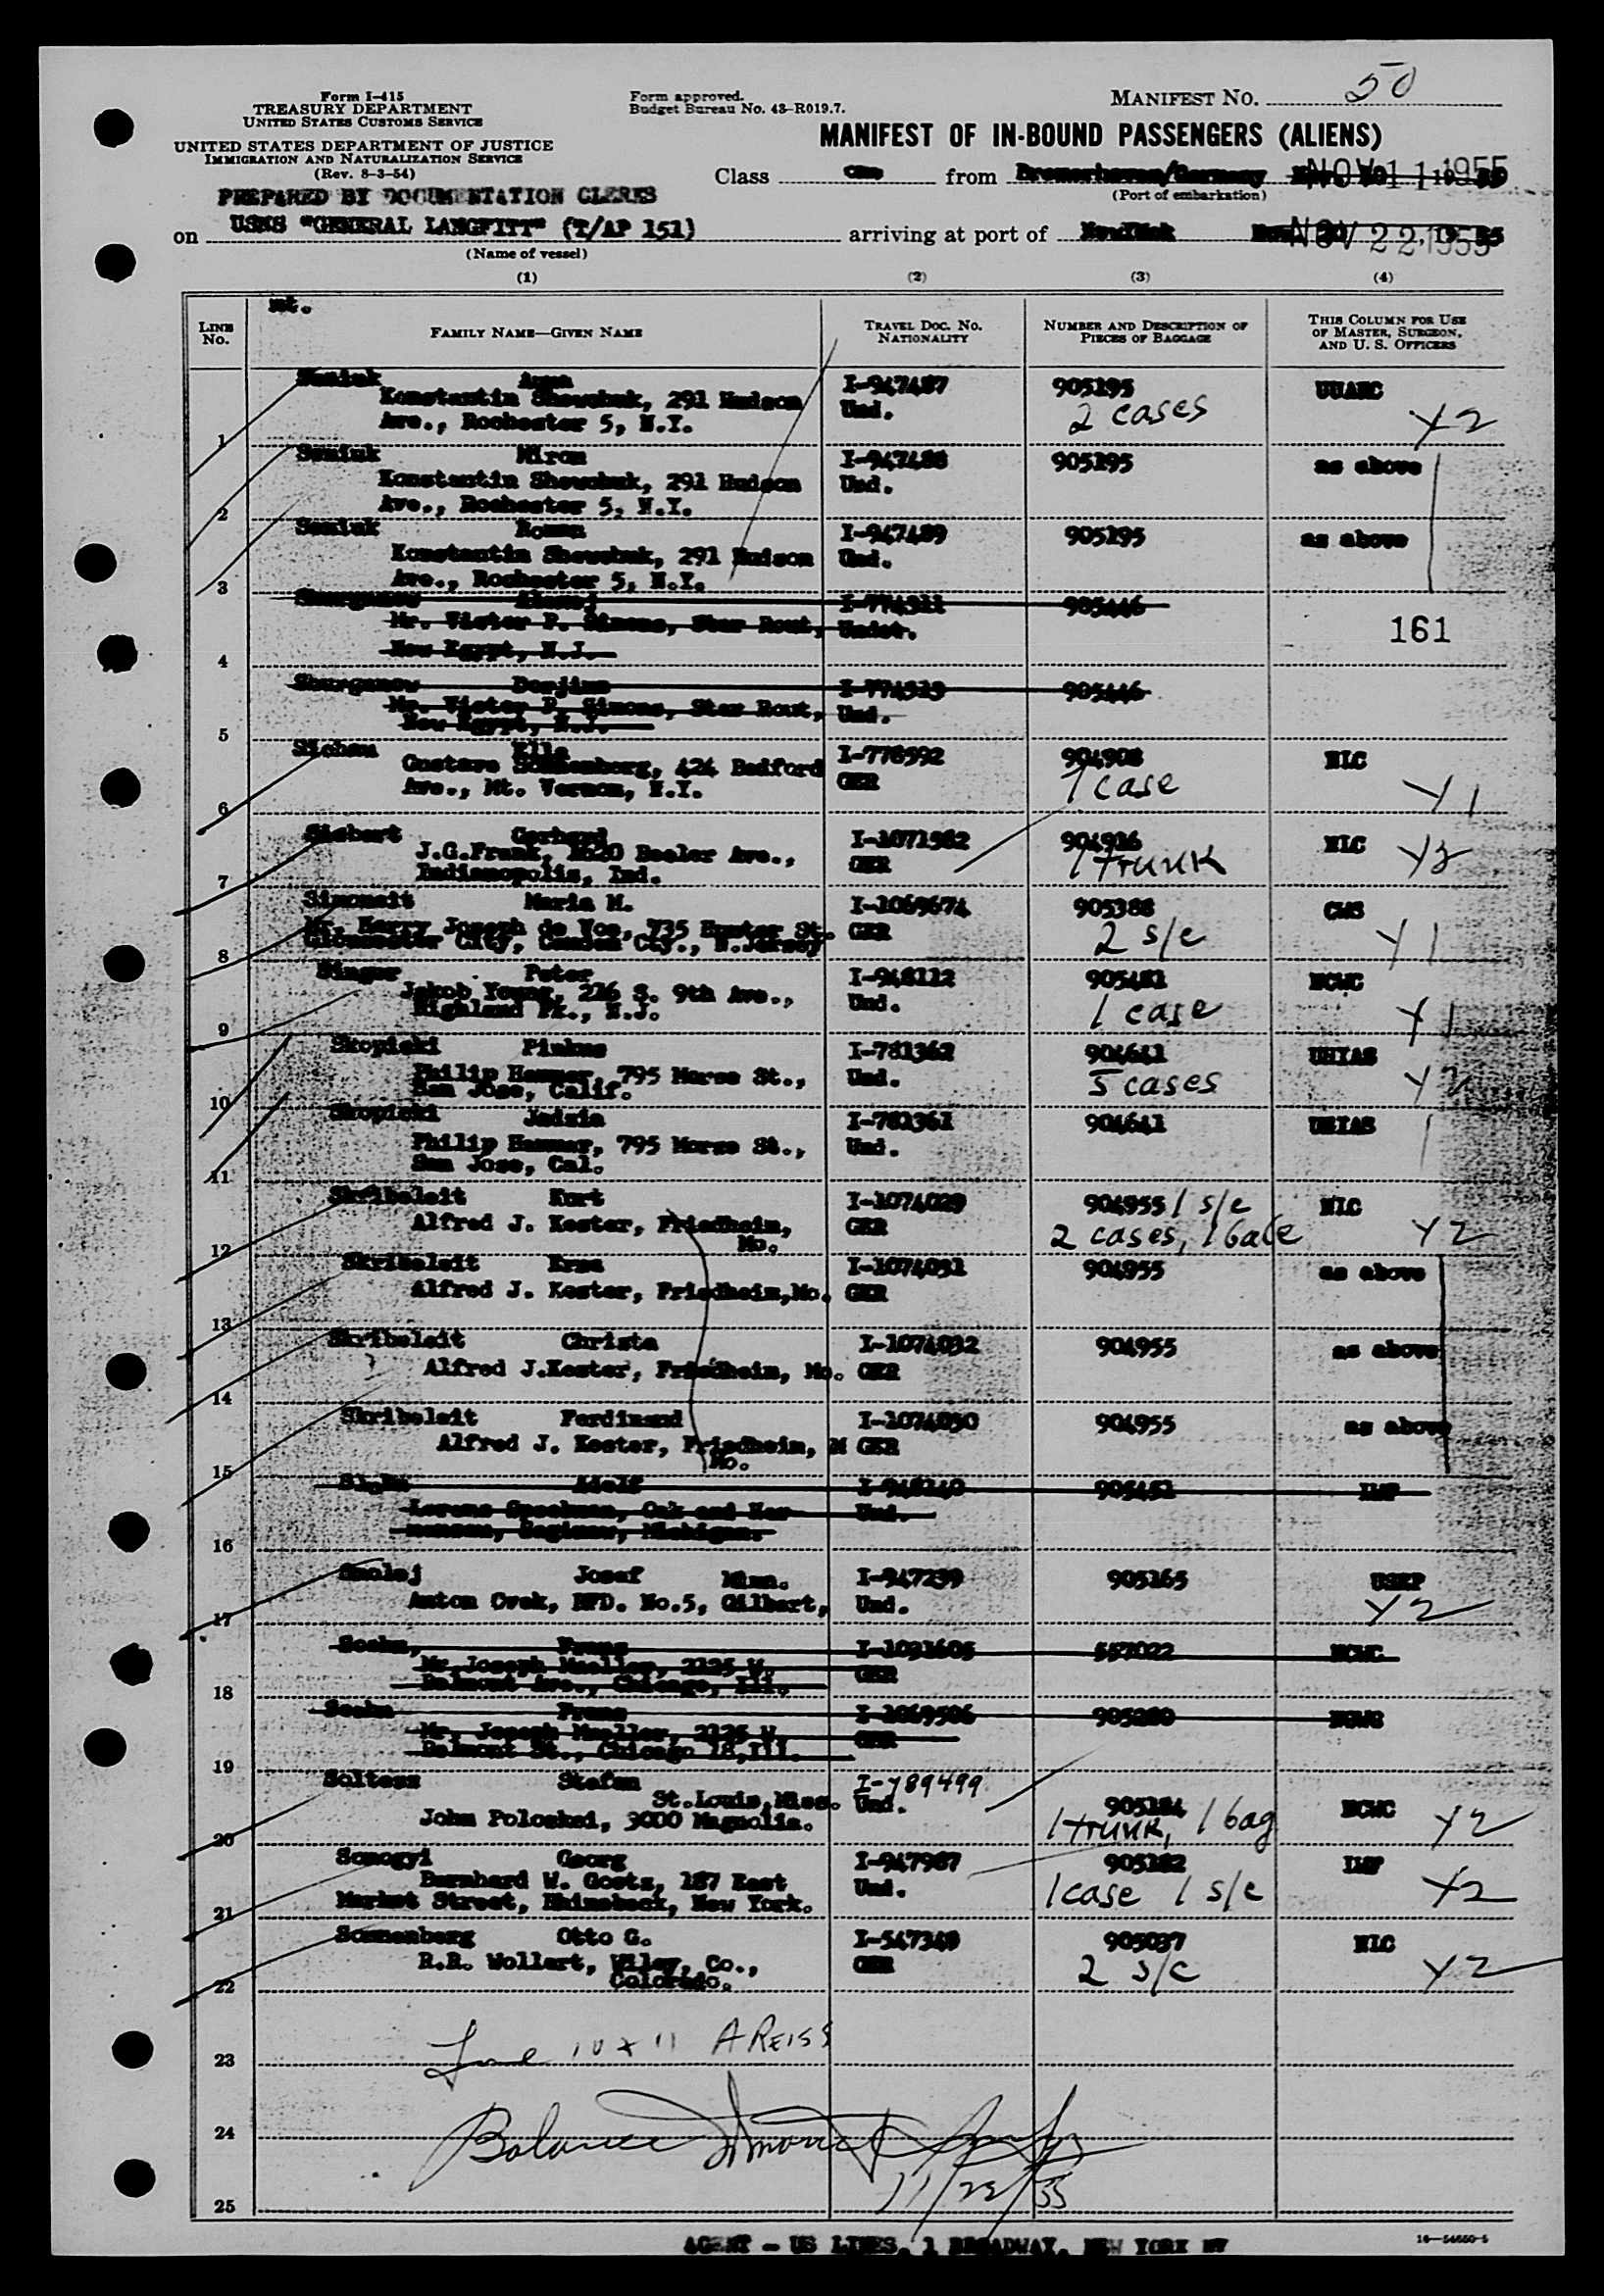 Form I-415
TREASURY DEPARTMENT
UNITED STATES CUSTOMS SERVICE
UNITED STATES DEPARTMENT OF JUSTICE
IMMIGRATION AND NATURALIZATION SERVICE
(Rev. 8-3-54)
Form approved.
Budget Bureau No. 43-R019.7.
MANIFEST NO. 50
MANIFEST OF IN-BOUND PASSENGERS (ALIENS)
Class from Bremerhaven/Germany NOV 11 1955
(Port of embarkation)
PREPARED BY DOCUMENTATION CLERKS
on USNS "GENERAL LANGFITT" (T/AP 151) arriving at port of New York NOV 22 1955
(Name of vessel)
(1) (2) (3) (4)
LINE NO.
FAMILY NAME—GIVEN NAME
TRAVEL DOC. NO. NATIONALITY
NUMBER AND DESCRIPTION OF PIECES OF BAGGAGE
THIS COLUMN FOR USE OF MASTER, SURGEON, AND U. S. OFFICERS
Semiuk Anna I-947487 905195 UUARC
Konstantin Shewchuk, 291 Hudson Und. 2 cases
1 Ave., Rochester 5, N.Y. Y2
Semiuk Miron I-947488 905195 as above
Konstantin Shewchuk, 291 Hudson Und.
2 Ave., Rochester 5, N.Y.
Semiuk Roman I-947489 905195 as above
Konstantin Shewchuk, 291 Hudson Und.
3 Ave., Rochester 5, N.Y.
905446
Mr. Victor P. Simons, Star Rout, 161
4 New Egypt, N.J.
905446
Mr. Victor P. Simons, Star Rout, Und.
5 New Egypt, N.J.
Ella I-778592 904908 NLC
Gustave Sonnenborg, 424 Bedford GER 1 case
6 Ave., Mt. Vernon, N.Y. Y1
Siebert Gerhard I-1071982 904916 NLC
J.G.Frank, 2620 Beeler Ave., GER 1 trunk Y2
7 Indianapolis, Ind.
Simoneit Maria M. I-1069674 905388 CWS
Mr. Harry Joseph de Voe, 735 Hunter St. GER 2 s/c Y1
8 Gloucester City, Camden Cty., N.Jersey
Singer Peter I-948112 905481 NCWC
Jakob Young, 216 S. 9th Ave., Und. 1 case Y1
9 Highland Pk., N.J.
Skopicki Pinkus I-781362 904641 UHIAS
Philip Hammer, 795 Morse St., Und. 5 cases Y2
10 San Jose, Calif.
Skopicki Jadzia I-781361 904641 UHIAS
Philip Hammer, 795 Morse St., Und.
11 San Jose, Cal.
Skribeleit Kurt I-1074029 904955 1 s/c NLC
Alfred J. Kester, Friedheim, GER 2 cases, 1 bale Y2
12 Mo.
Skribeleit Erna I-1074031 904955 as above
Alfred J. Kester, Friedheim,Mo. GER
13
Skribeleit Christa I-1074032 904955 as above
Alfred J.Kester, Friedheim, Mo. GER
14
Skribeleit Ferdinand I-1074030 904955 as above
Alfred J. Kester, Friedheim, M GER
15 Mo.
Adolf I-948140 905451 LWF
Und.
16 Saginaw, Michigan.
Smolej Josef Minn. I-947239 905165 USEP
17 Anton Cvek, RFD. No.5, Gilbert, Und. Y2
Franz 557022 NCWC
Mr.Joseph Mueller, 2125 W. GER
18 Belmont Ave., Chicago, Ill.
Franz I-1069506 905280 NCWC
Mr. Joseph Mueller, 2125 W. GER
19 Belmont St., Chicago 18,Ill.
Soltesz Stefan I-789499
St.Louis,Miss. Und. 905184 NCWC
20 John Poloskei, 3000 Magnolia. 1 trunk, 1 bag Y2
Somogyi Georg I-947987 905182 LWF
Bernhard W. Goetz, 187 East Und. 1 case 1 s/c Y2
21 Market Street, Rhinebeck, New York.
Sonnenberg Otto G. I-547349 905037 NLC
R.R. Wollert, Wiley, Co., GER 2 s/c Y2
22 Colorado.
23 Line 10 & 11 A REISS
24 Balance
11/22/55
25
AGENT - US LINES, 1 BROADWAY, NEW YORK NY
16—54650-5